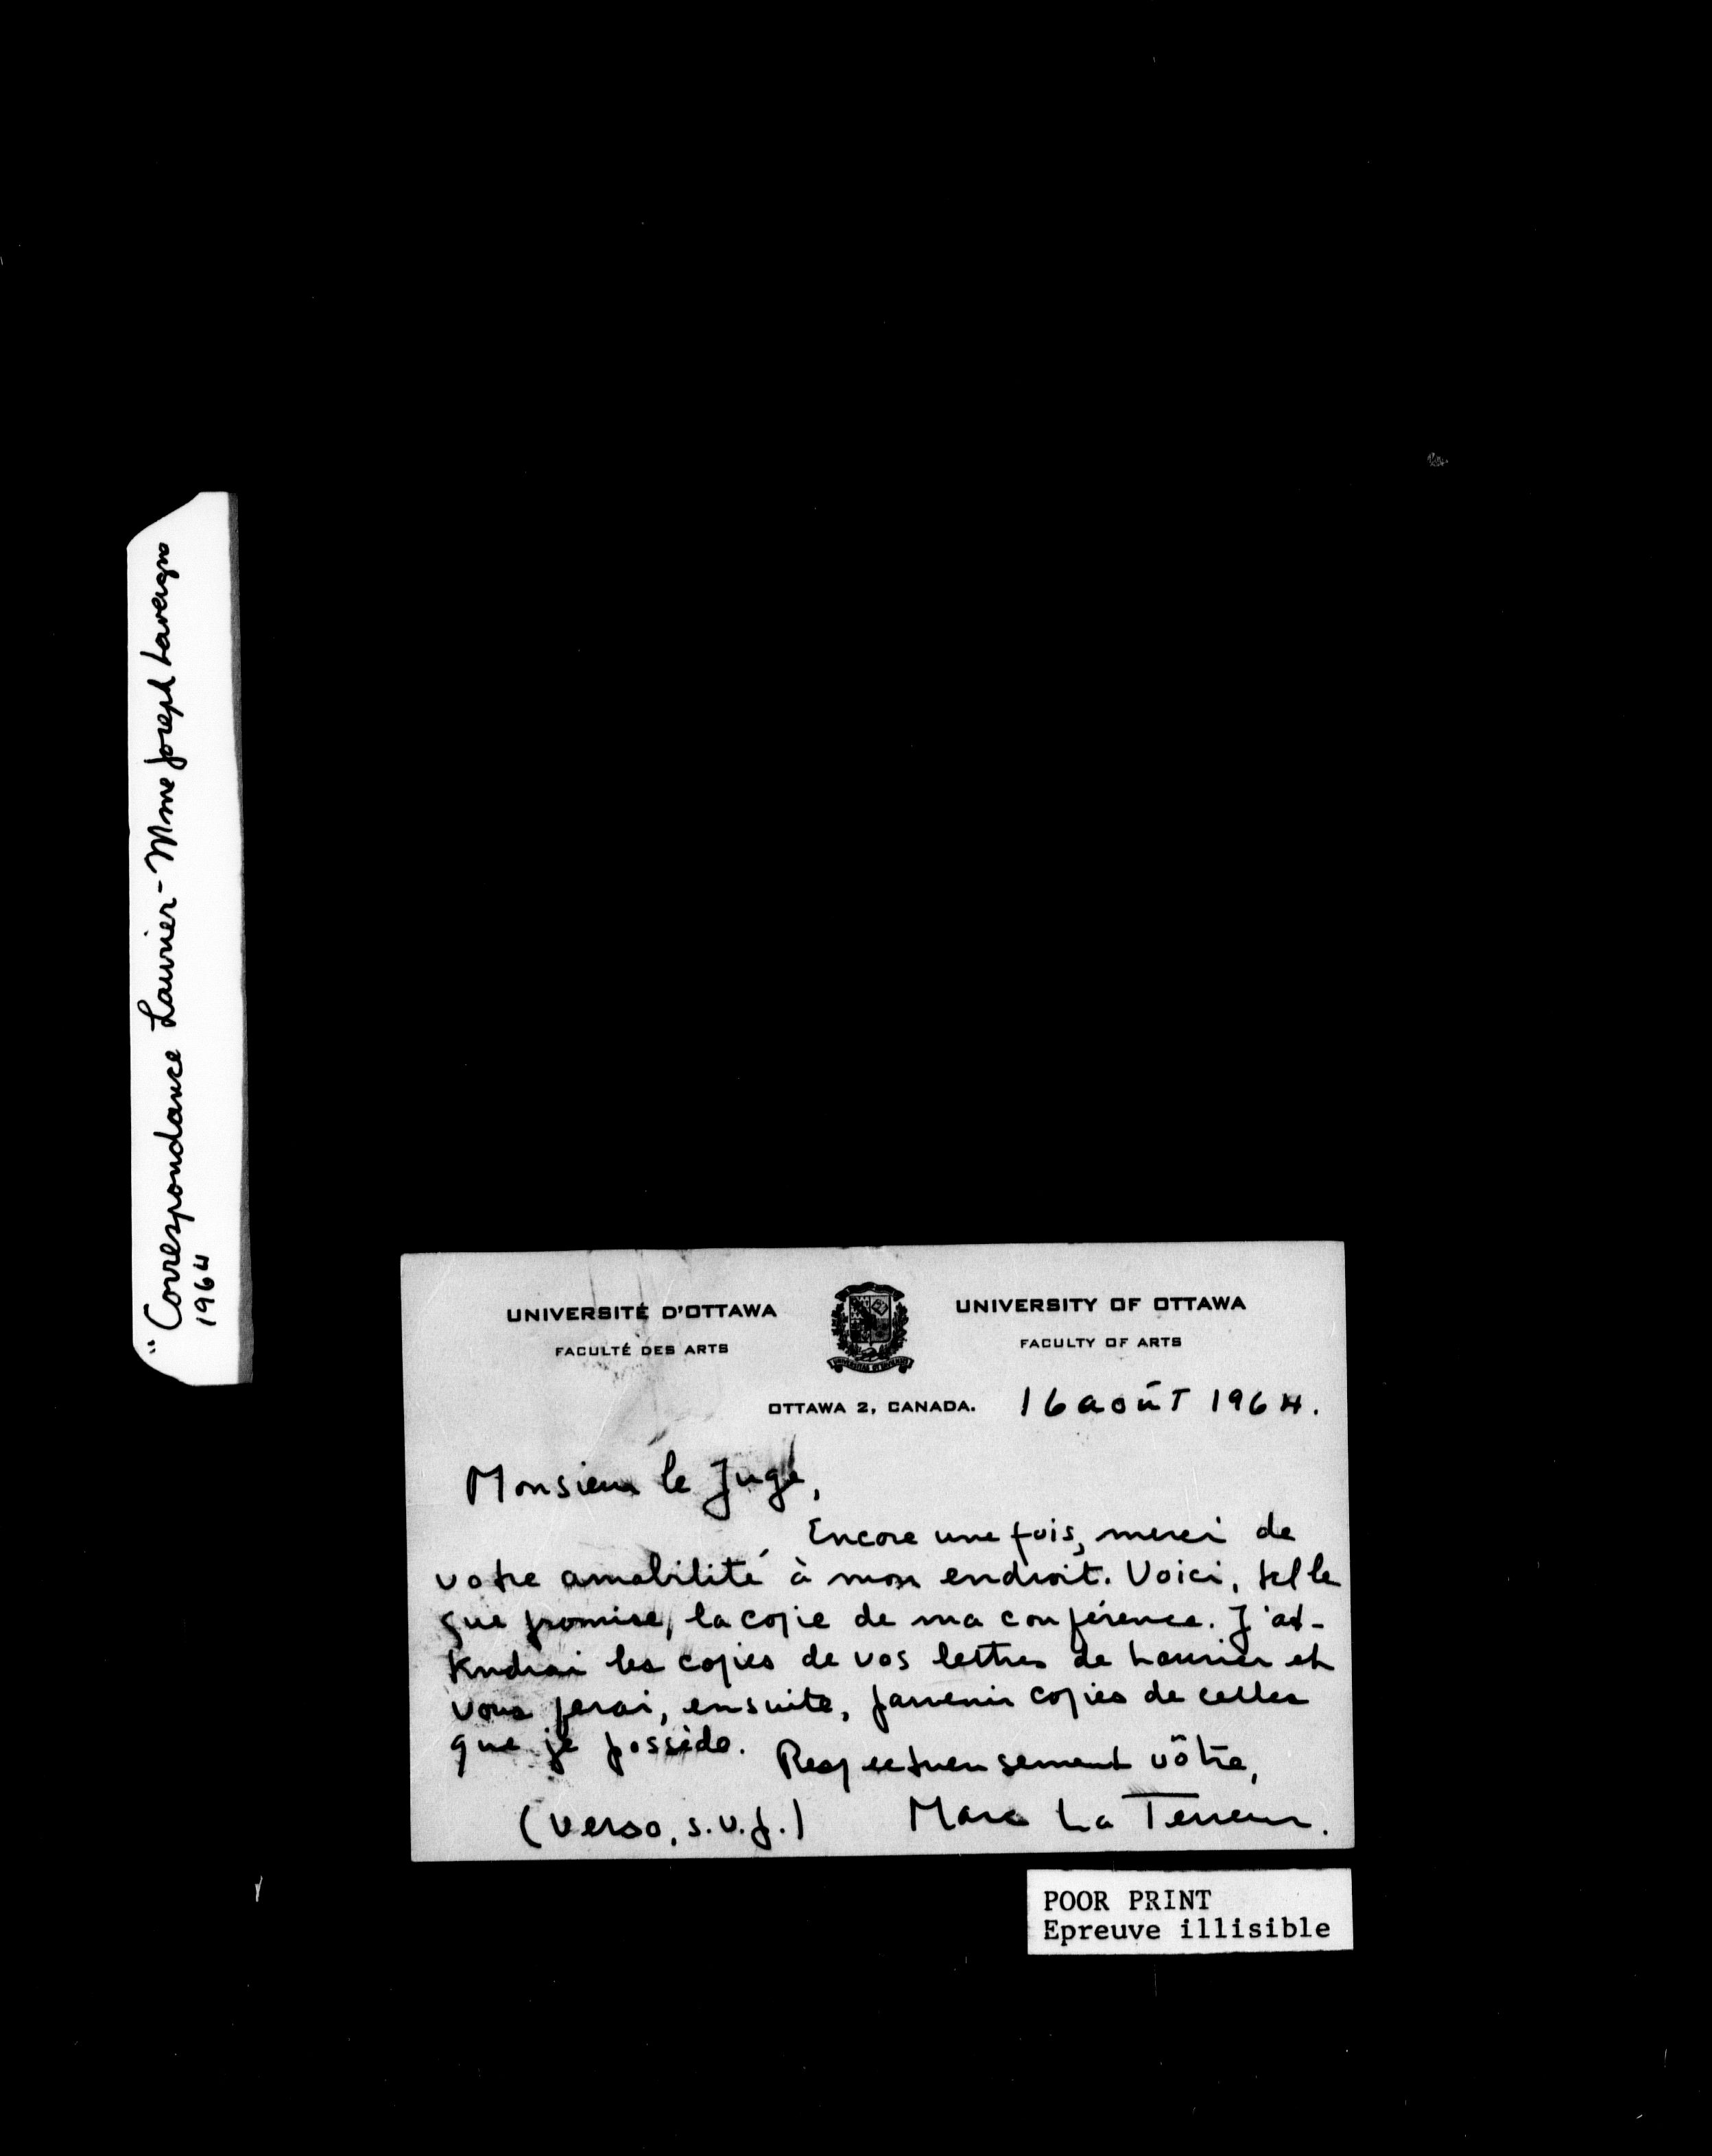 "Correspondance Laurier - Mme Joseph Lavergne
1964
UNIVERSITÉ D'OTTAWA
FACULTÉ DES ARTS
UNIVERSITY OF OTTAWA
FACULTY OF ARTS
OTTAWA 2, CANADA. 16 août 1964.
Monsieur le Juge,
Encore une fois, merci de
votre amabilité à mon endroit. Voici, telle
que promise, la copie de ma conférence. J'at-
tendrai les copies de vos lettres de Laurier et
vous ferai, ensuite, parvenir copies de celles
que je possède.
Respectueusement vôtre,
(verso, s.v.p.) Marc La Terreur.
POOR PRINT
Epreuve illisible